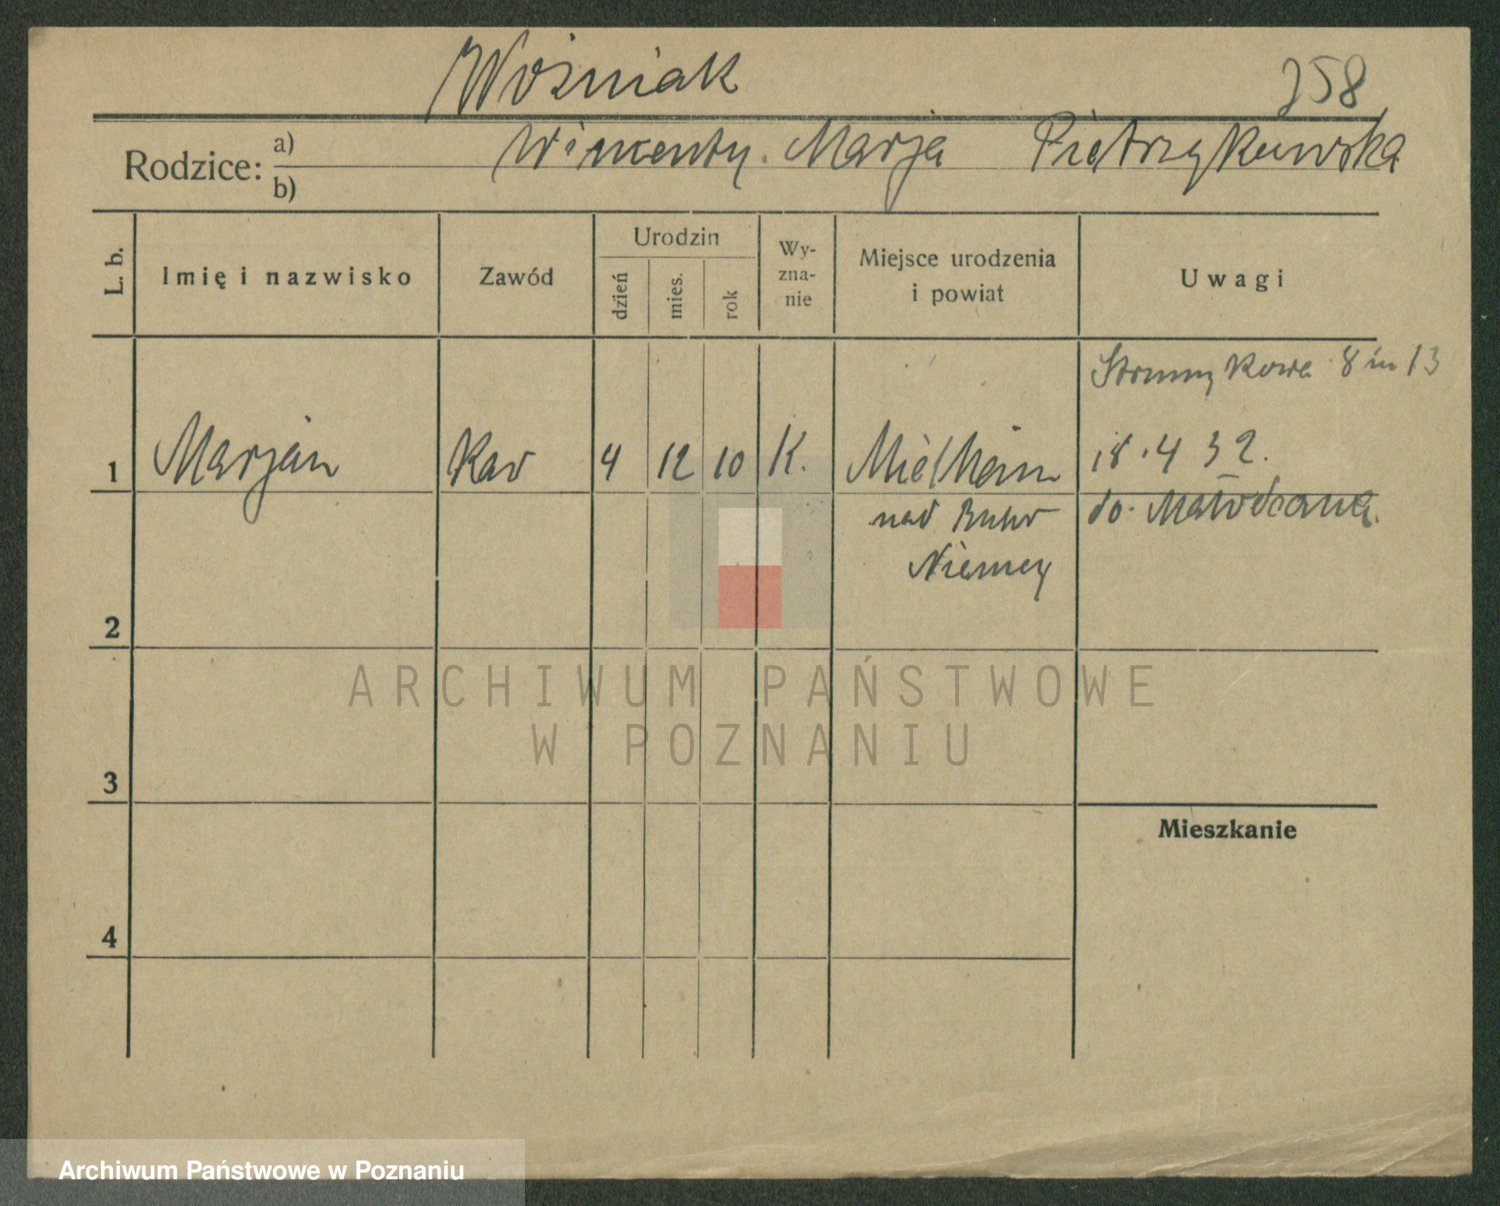 Woźniak
358
Rodzice: a) Wincenty. Marja Pietrzykowska
b)
L. b.
Imię i nazwisko
Zawód
Urodzin
dzień
mies.
rok
Wy-
zna-
nie
Miejsce urodzenia
i powiat
Uwagi
Strumykowa 8 m 13
1 Marjan Kav 4 12 10 K. Mielheim 18.4 32.
nad Ruhr do
Niemcy
2
ARCHIWUM PAŃSTWOWE
W POZNANIU
3
Mieszkanie
4
Archiwum Państwowe w Poznaniu